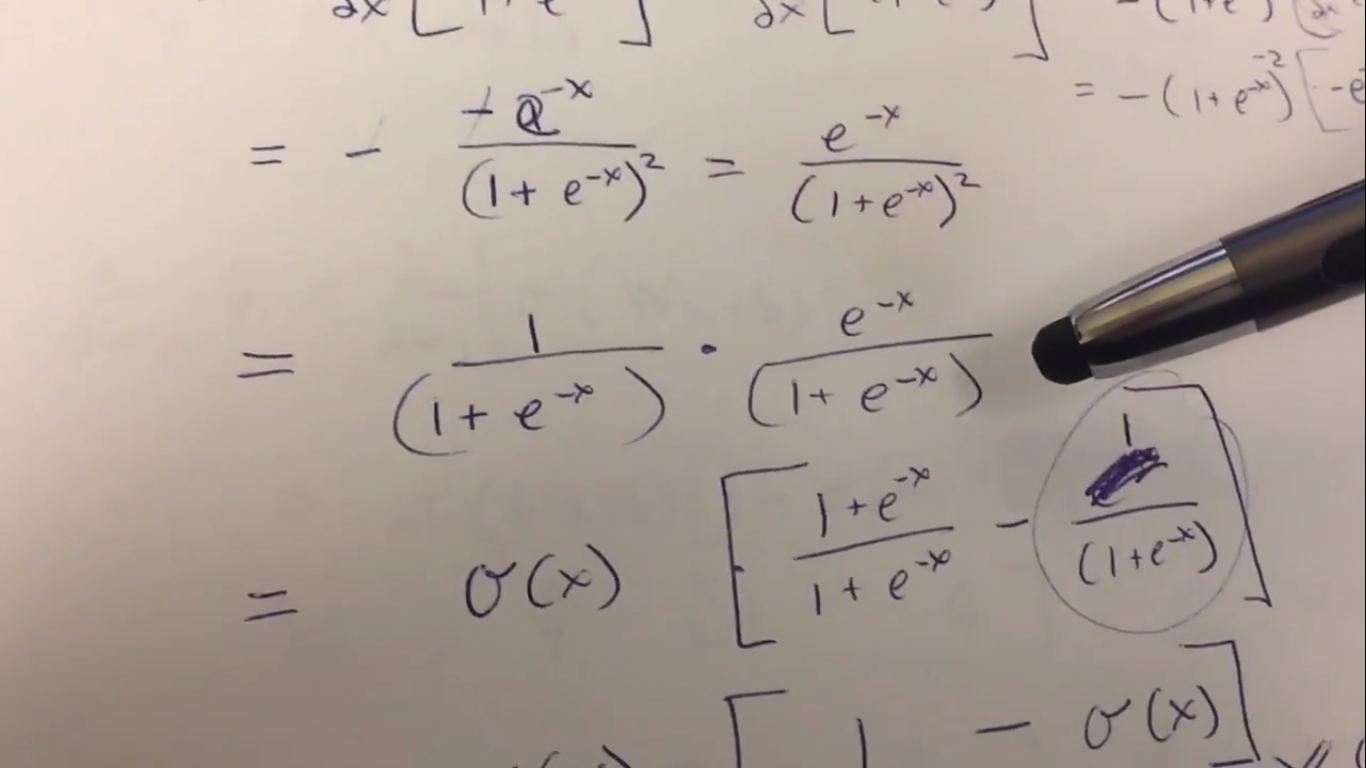 = - -e^{-x}/(1+e^{-x})² = e^{-x}/(1+e^{-x})²
= -(1+e^{-x})^{-2} [-e
= 1/(1+e^{-x}) · e^{-x}/(1+e^{-x})
= σ(x) [(1+e^{-x})/(1+e^{-x}) - 1/(1+e^{-x})]
[1 - σ(x)]